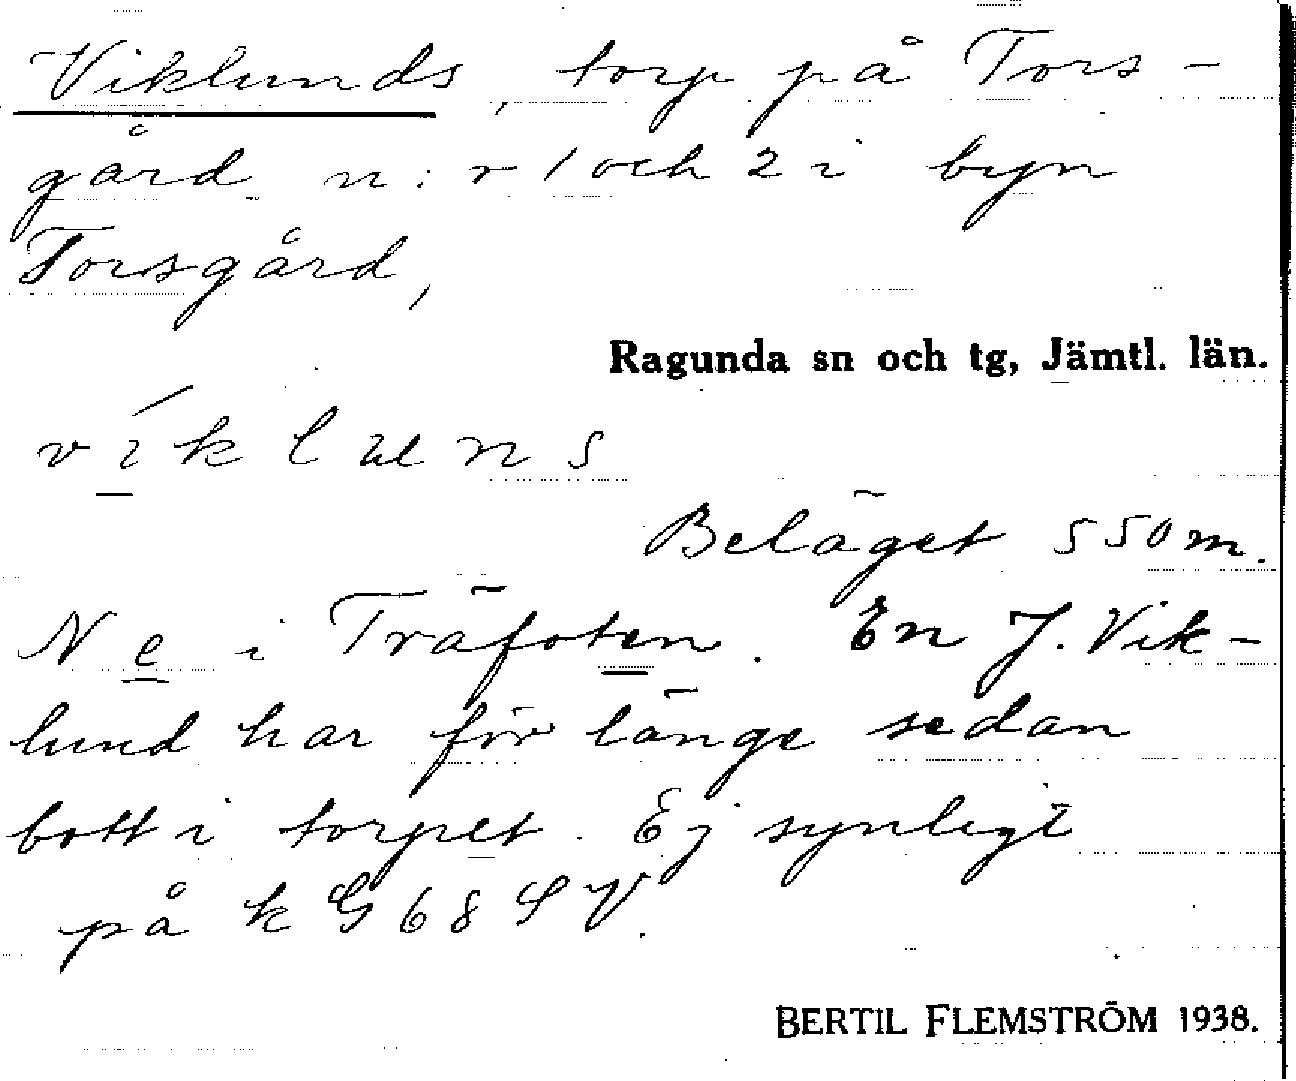 Viklunds, torp på Tors-
gård n:r 1 och 2 i byn
Torsgård,
Ragunda sn och tg, Jämtl. län.
víkluns
Beläget 550 m.
N e i Träfoten. En J. Vik-
lund har för länge sedan
bott i torpet. Ej synligt
på k G 68 SV.
BERTIL FLEMSTRÖM 1938.